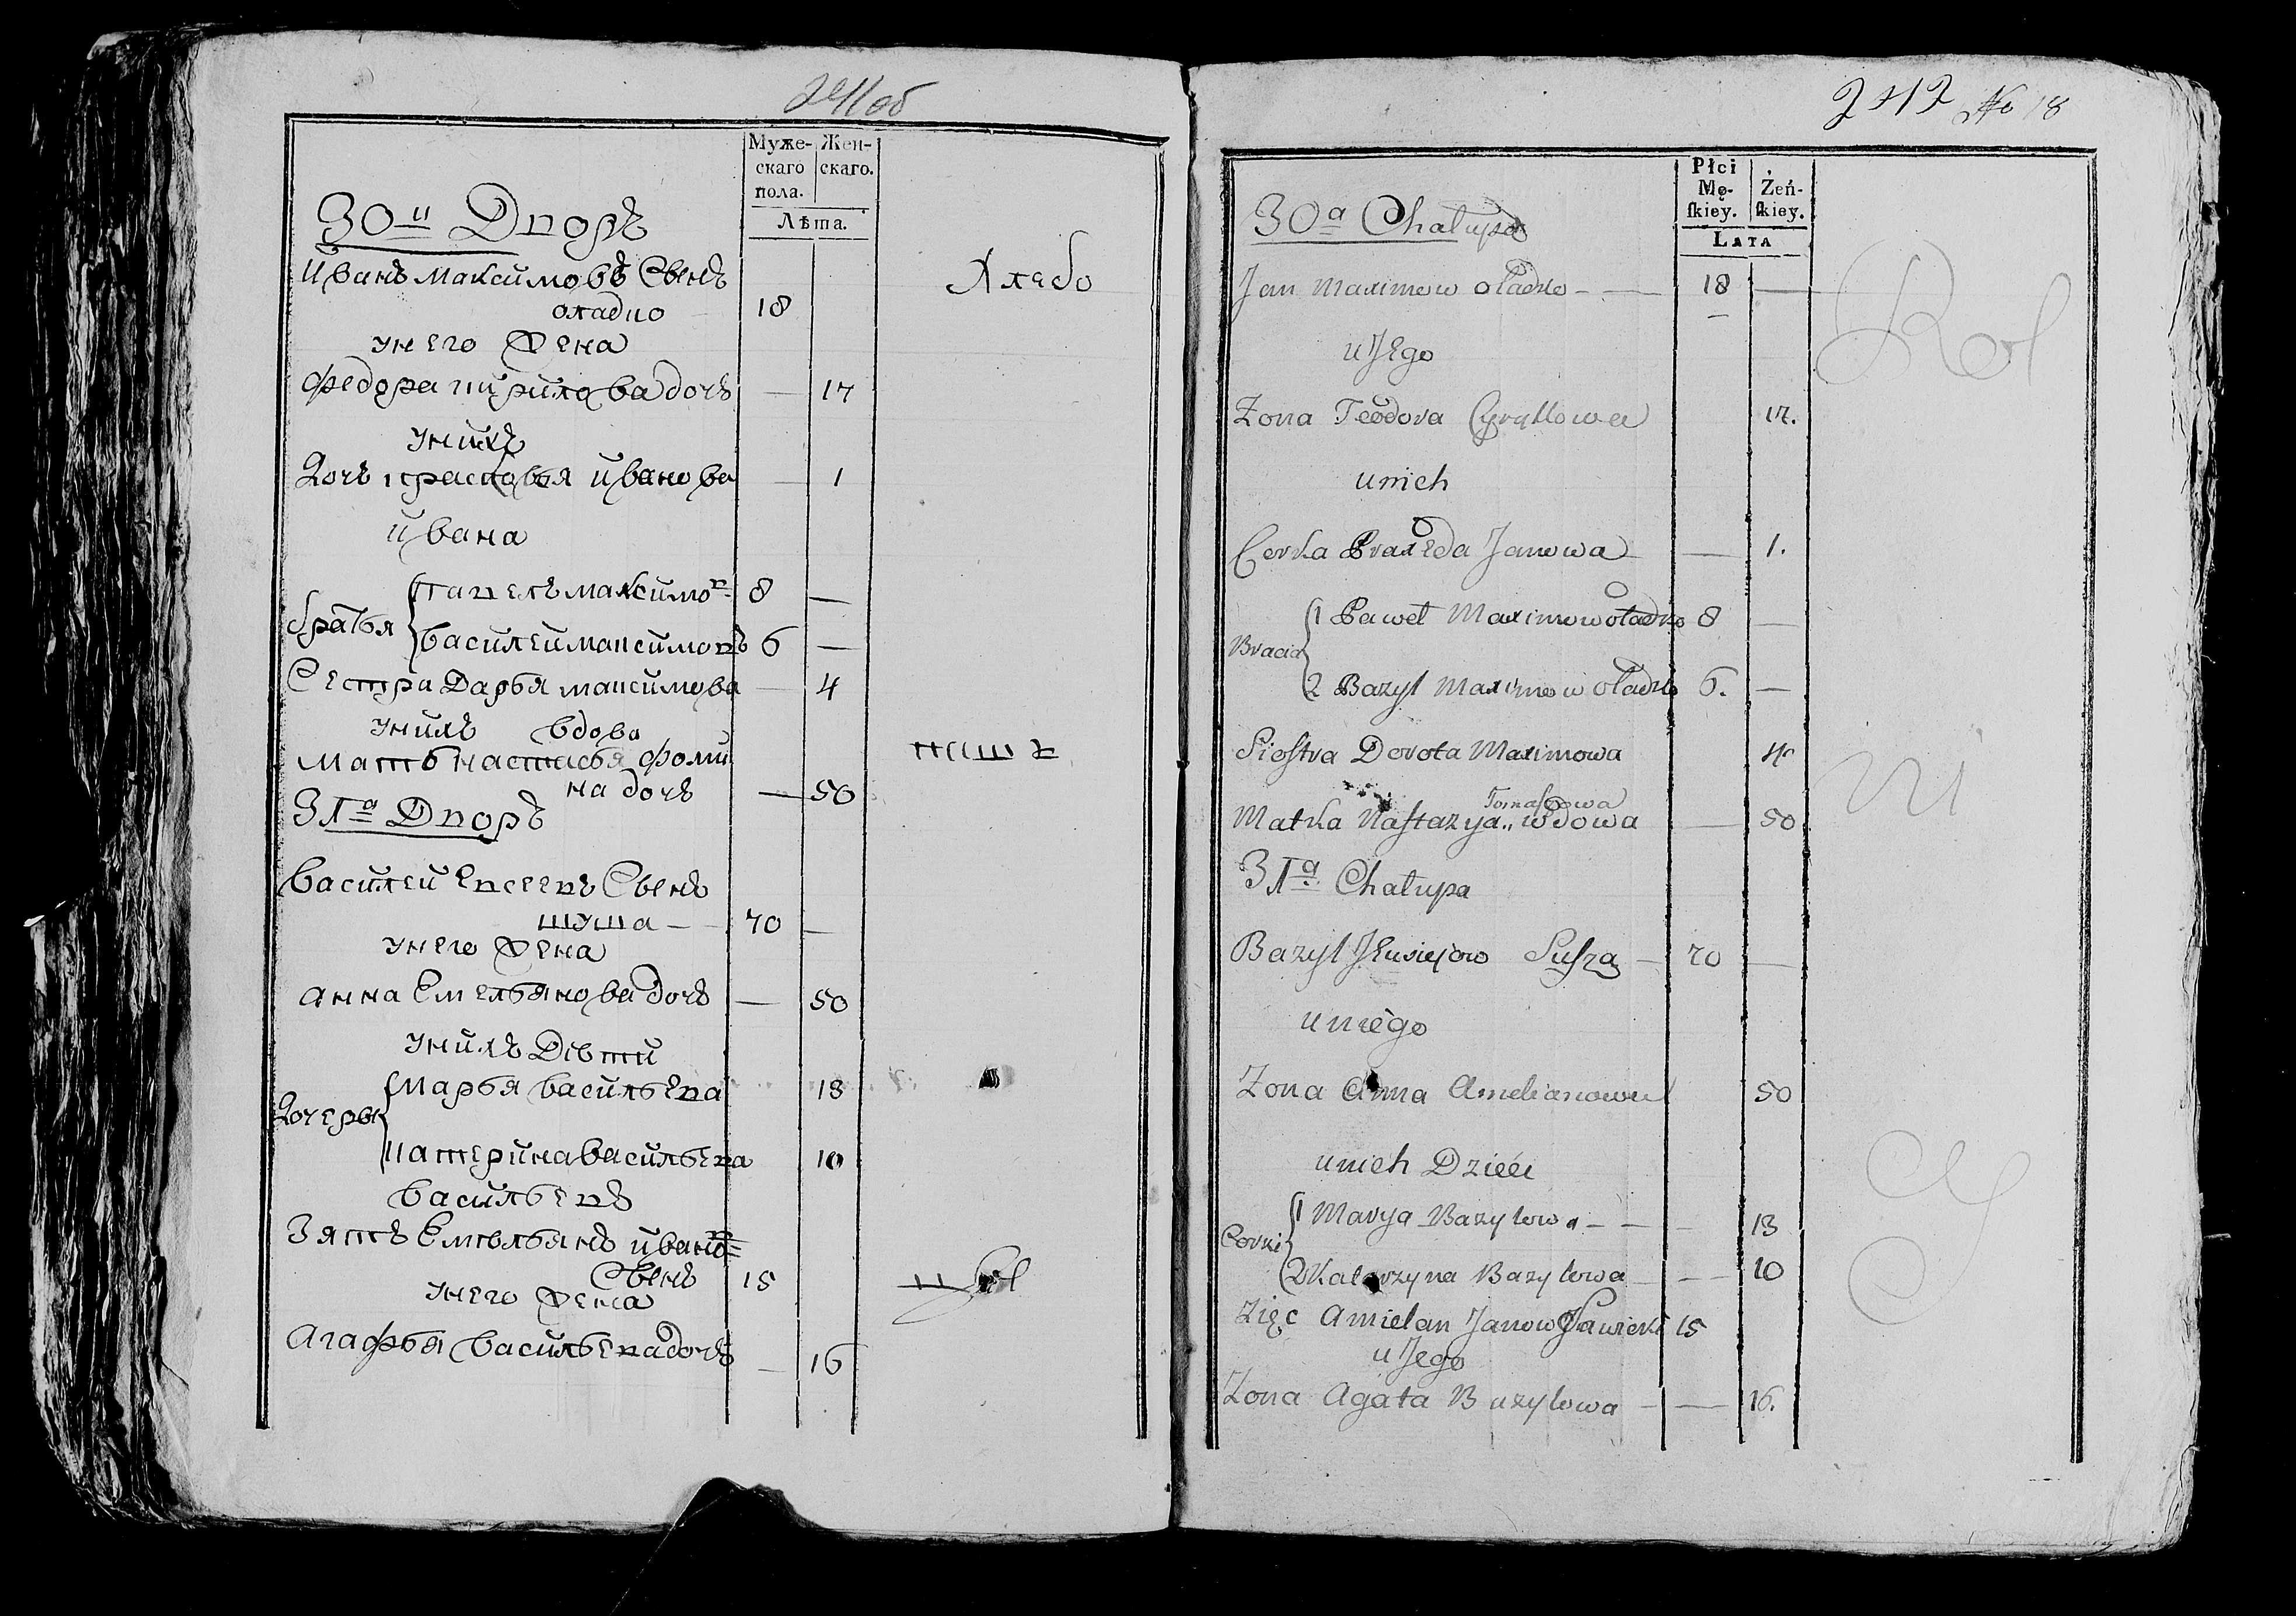 241об
Муже-
скаго
пола.
Жен-
скаго.
Лѣта.
30й Дворъ
Иванъ Максимовъ Сынъ
оладко 18
унего Жена
Федора Кирилова дочь — 17
унихъ
Дочь Красковья Иванова — 1
Ивана
братья
Павелъ Максимов 8 —
Василей Максимовъ 6 —
Сестра Дарья Максимова — 4
унихъ вдова
Мать Настасья Фоми
на дочь — 50
31а Дворъ
Василей Евсеевъ Сынъ
шуша — 70 —
унего Жена
Анна Емельянова дочь — 50
унихъ Дѣти
Дочеры
Марья Васильева 13
Катерина Васильева 10
Васильевъ
Зять Емельянъ Иванов
Сынъ 15
унего Жена
Агафья Васильева дочь — 16
Хлебо
242 No 18
Płci
Mę-
ſkiey.
Żeń-
ſkiey.
LATA
30a Chałupa
Jan Maximow oładko — 18 —
u Jego
Zona Teodora Cyryllowa 17.
unich
Corka Praxeda Janowa — 1.
Bracia
1 Paweł Maximow oładko 8 —
2 Bazyl Maximow oładko 6. —
Siostra Dorota Maximowa 4
Tomaszowa
Matka Nastazya wdowa — 50
31a Chałupa
Bazyl Jewsiejow Susza — 70 —
uniego
Zona Anna Amelianowa 50
unich Dzieci
Corki
1 Marya Bazylowa — 13
2 Katarzyna Bazylowa — 10
Zięc Amielan Janow Sawicki 15
u Jego
Zona Agata Bazylowa — 16.